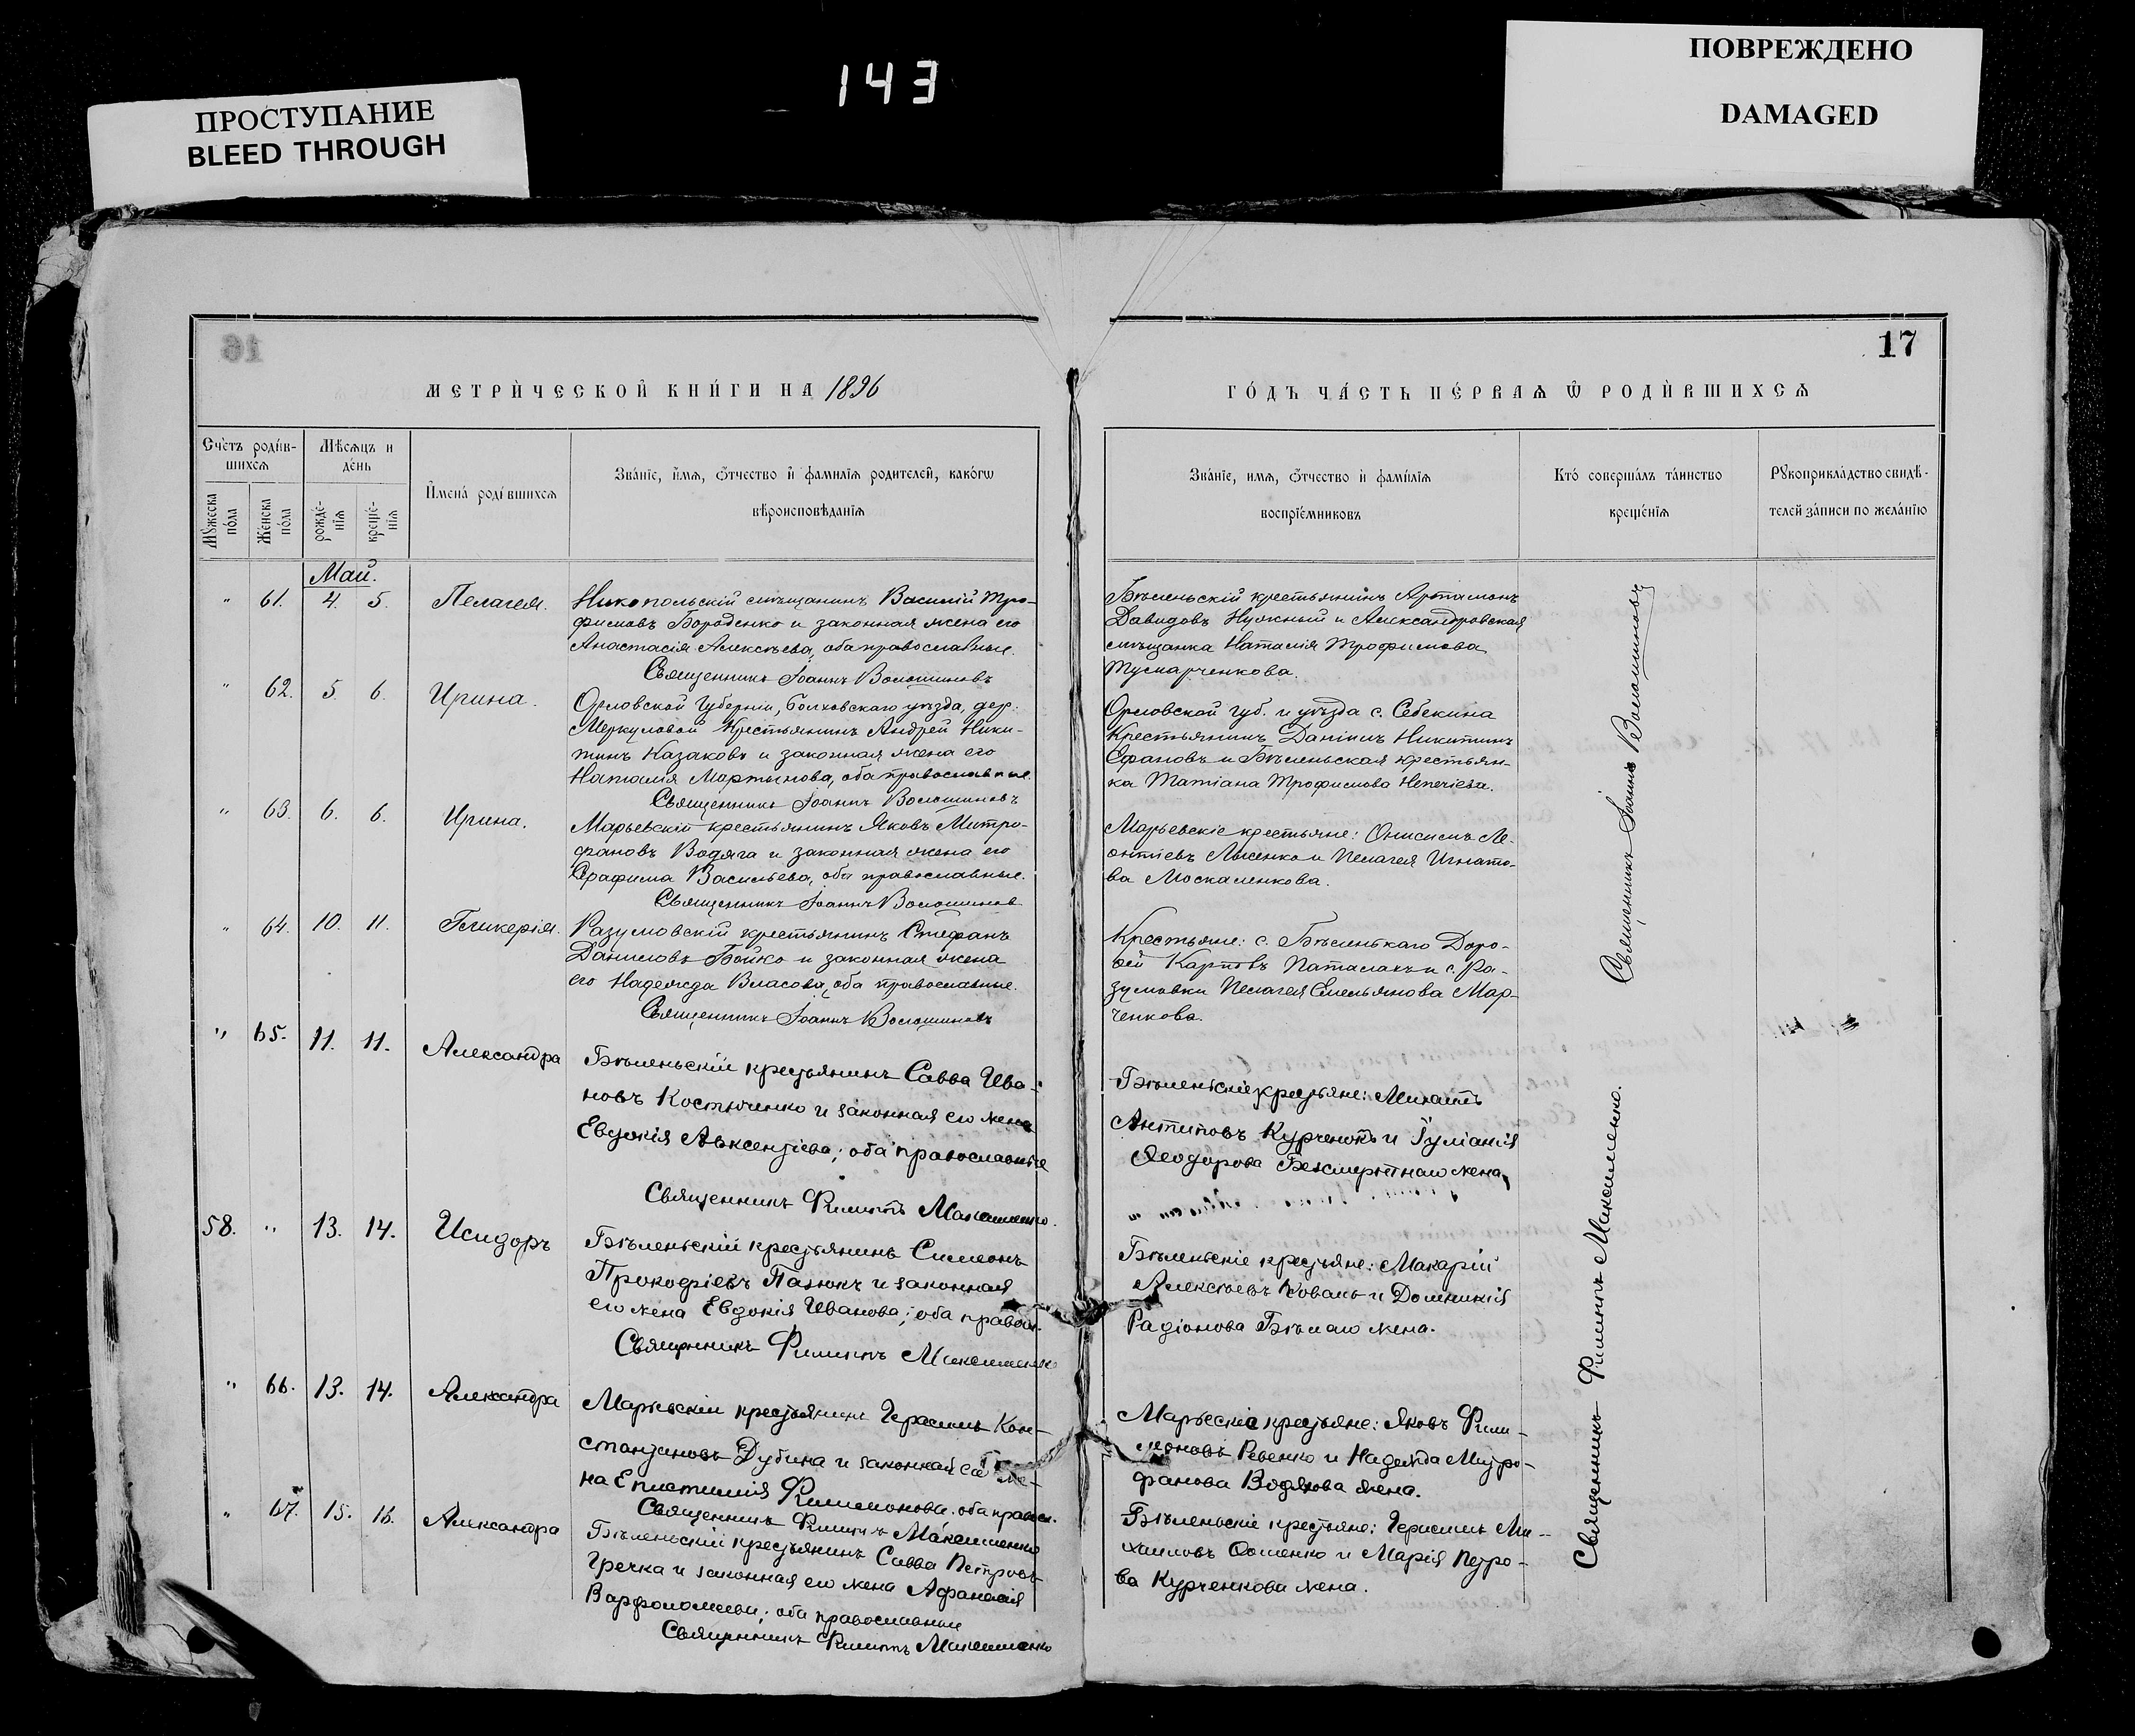 ПРОСТУПАНИЕ
BLEED THROUGH
143
ПОВРЕЖДЕНО
DAMAGED
17
МЕТРИ́ЧЕСКОЙ КНИ́ГИ НА 1896
ГО́ДЪ ЧА́СТЬ ПЕ́РВАѦ Ѿ РОДИ́ВШИХСѦ
Сче́тъ роди́в-
шихсѧ
Мѣ́сѧцъ и
де́нь
Мꙋжеска по́ла
Же́нска по́ла
рожде́-
нїѧ
креще́-
нїѧ
И҆мена́ роди́вшихсѧ
Зва́нїе, и҆́мѧ, ѻ҆́тчество и҆ фами́лїѧ родителей, како́гѡ
вѣроисповѣ́данїѧ
Зва́нїе, имѧ, ѻ҆́тчество и҆ фами́лїѧ
воспрїе́мниковъ
Кто̀ соверша́лъ та́инство
креще́нїѧ
Рꙋкоприкла́дство свидѣ́-
телей за́писи по жела́нїю
Май.
" 61. 4. 5. Пелагея.
Никопольскій мѣщанинъ Василій Тро-
фимовъ Бороденко и законная жена его
Анастасія Алексѣева, оба православные.
Священникъ Іоаннъ Волошиновъ
Бѣленьскій крестьянинъ Артамонъ
Давидовъ Нужный и Александровская
мѣщанка Наталія Трофимова
" 62. 5 6. Ирина.
Орловской Губерніи, Болховскаго уѣзда, дер.
Меркуловой Крестьянинъ Андрей Ники-
тинъ Казаковъ и законная жена его
Наталія Мартынова, оба православные.
Священникъ Іоаннъ Волошиновъ
Орловской губ. и уѣзда с. Себекина
Крестьянинъ Даніилъ Никитинъ
и Бѣленьская крестьян-
ка Татіана Трофимова
" 63. 6. 6. Ирина.
Марьевскій крестьянинъ Яковъ Митро-
фановъ Водяга и законная жена его
Серафима Васильева, оба православные.
Священникъ Іоаннъ Волошинов
Марьевскіе крестьяне: Онисимъ Ле-
онтіевъ Лысенко и Пелагея Игнато-
ва Москаленкова.
" 64. 10. 11. Гликерія.
Разумовскій крестьянинъ Стефанъ
Даниловъ Бойко и законная жена
его Надежда Власова, оба православные.
Священникъ Іоаннъ Волошиновъ
Крестьяне: с. Бѣленькаго Доро-
фей Карповъ и с. Ра-
зумовки Пелагея Емельянова Мар-
ченкова.
Священникъ Іоаннъ Волошиновъ
" 65. 11. 11. Александра
Бѣленьскій крестьянинъ Савва Ива-
новъ Костюченко и законная его жена
Евдокія Авксентіева; оба православные
Священникъ Филиппъ Максименко.
Бѣленьскіе крестьяне: Михаилъ
Антиповъ Курченко и Іуліанія
Ѳеодорова Безсмертнаго жена,
58. " 13. 14. Исидоръ
Бѣленьскій крестьянинъ Симеонъ
Прокофіевъ Пазюкъ и законная
его жена Евдокія Иванова; оба правосл.
Священникъ Филиппъ Максименко
Бѣленьскіе крестьяне: Макарій
Алексѣевъ Коваль и Домникія
Радіонова Бѣлаго жена.
" 66. 13. 14. Александра
Марьевскій крестьянинъ Герасимъ Кон-
стантиновъ Дубина и законная его же-
на Епистимія Филимонова. оба правосл.
Священникъ Филиппъ Максименко
Марьевскіе крестьяне: Яковъ Фили-
моновъ Ревенко и Надежда Митро-
фанова Водякова жена.
" 67. 15. 16. Александра
Бѣленьскій крестьянинъ Савва Петровъ
Гречка и законная его жена Афанасія
Варфоломеева; оба православные
Священникъ Филиппъ Максименко
Бѣленьскіе крестьяне: Герасимъ Ми-
хаиловъ и Марія Петро-
ва Курченкова жена.
Священникъ Филиппъ Максименко.